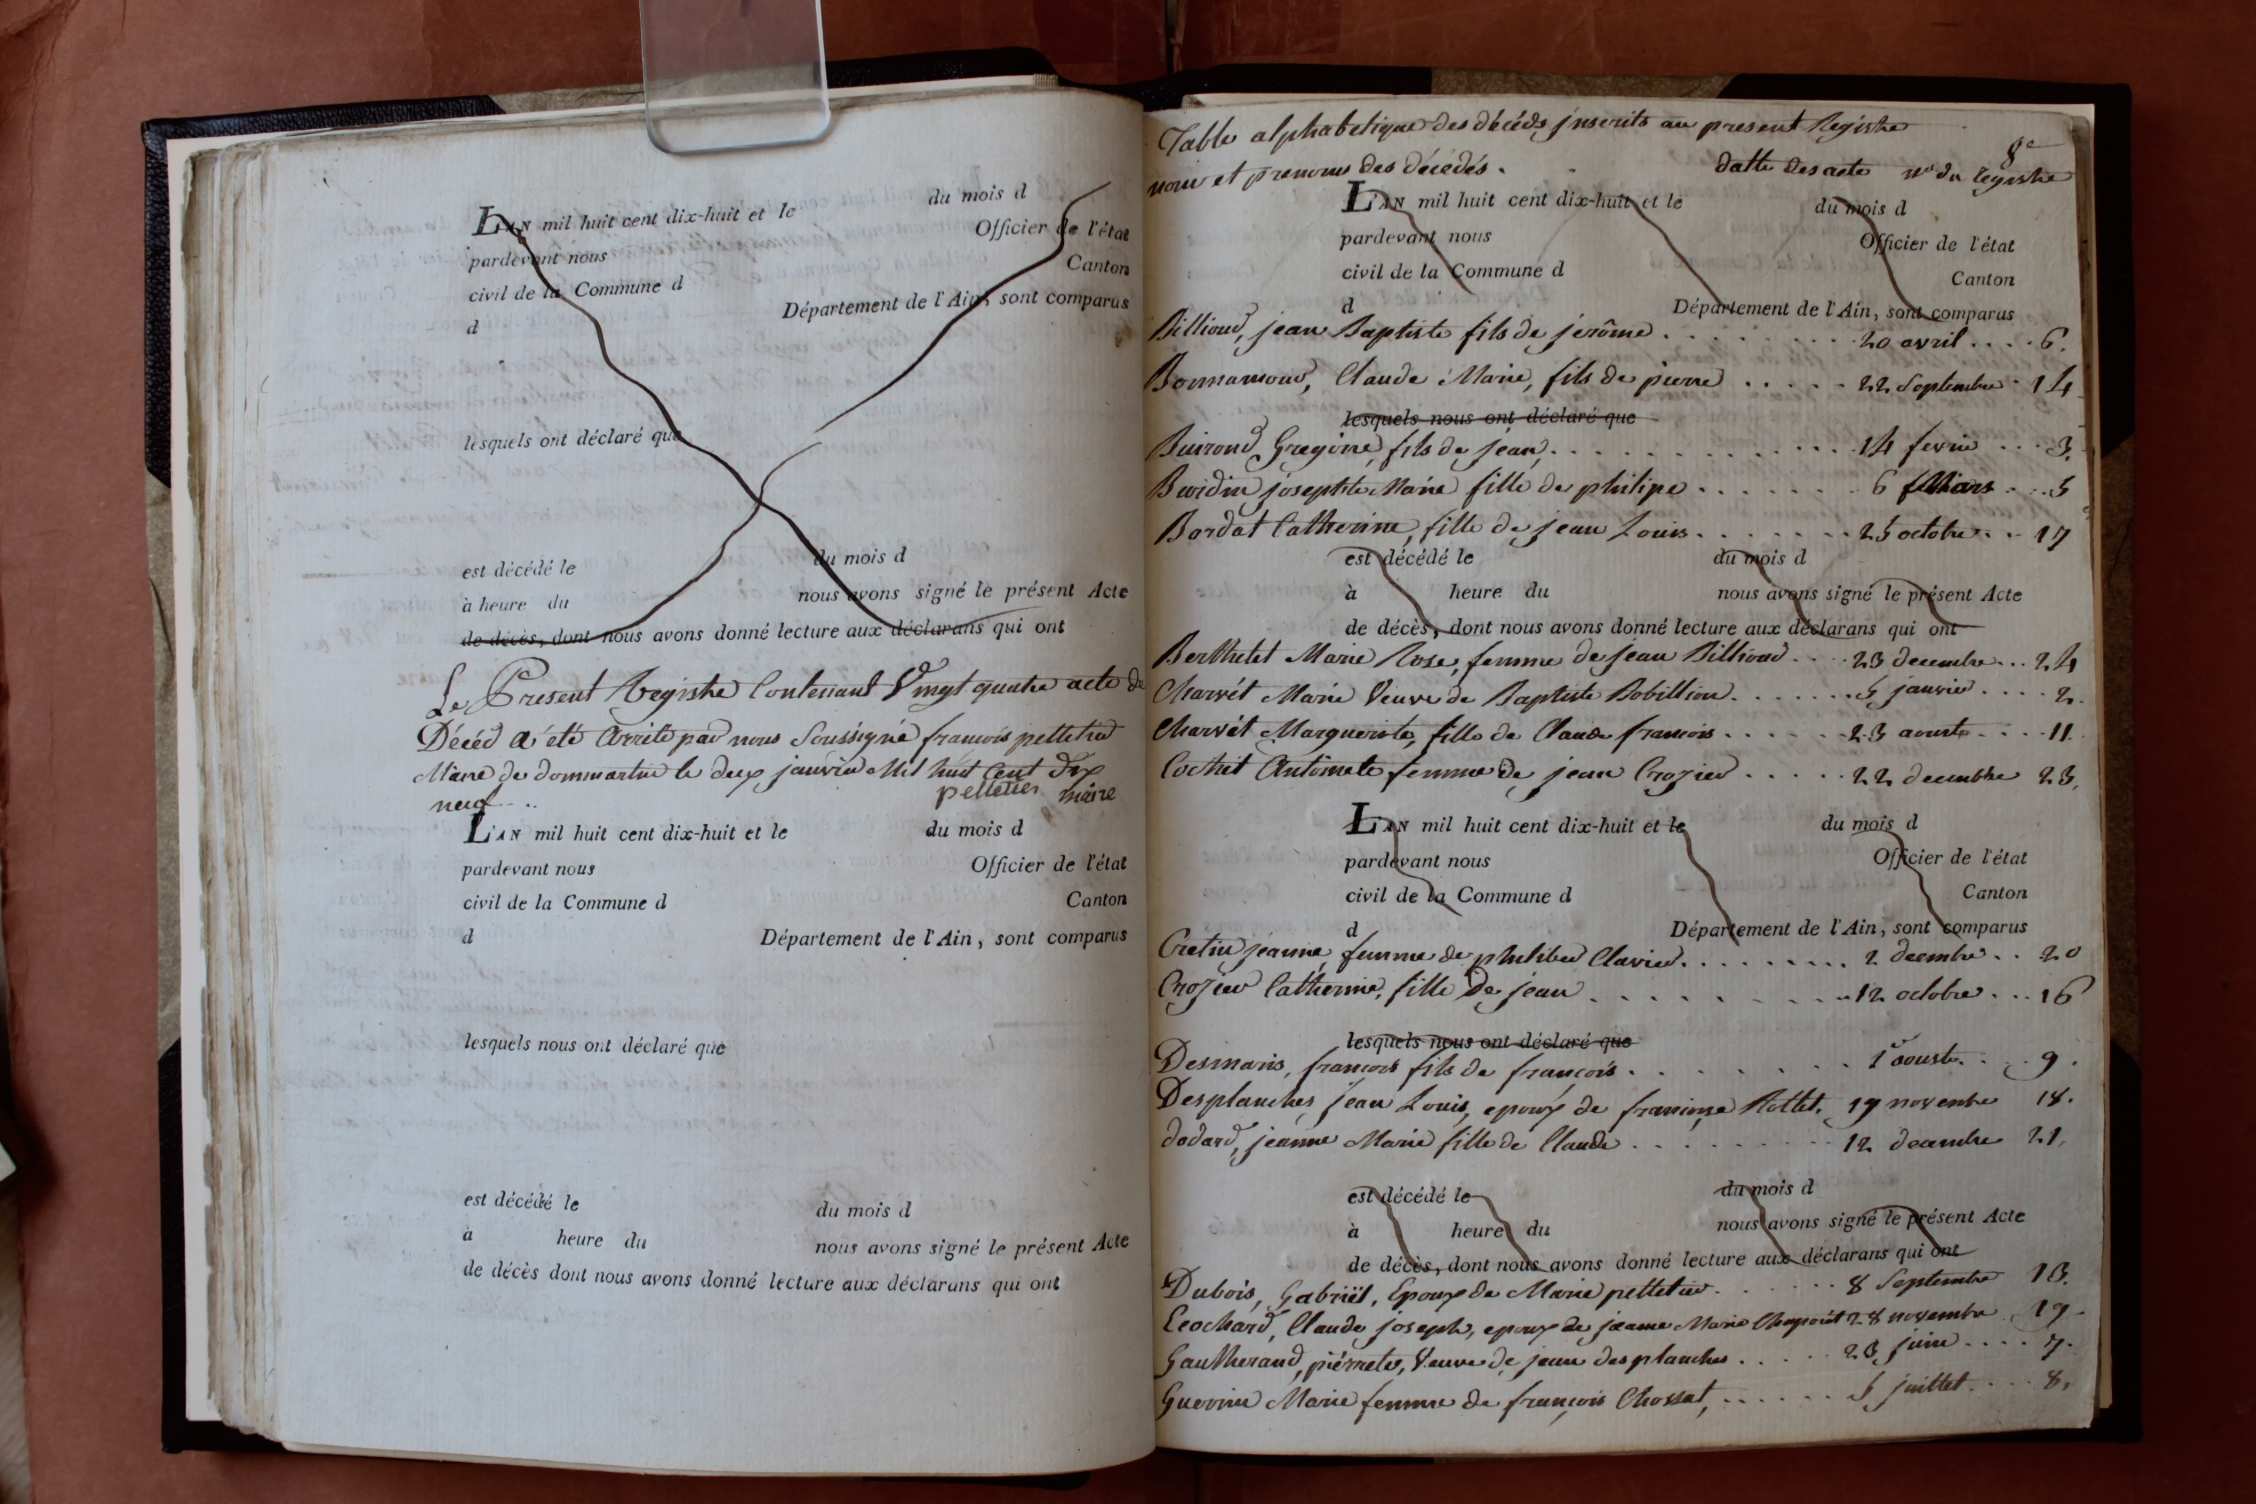 L'AN mil huit cent dix-huit et le du mois d
pardevant nous Officier de l'état
civil de la Commune d Canton
d Département de l'Ain, sont comparus
lesquels ont déclaré que
est décédé le du mois d
à heure du nous avons signé le présent Acte
de décès, dont nous avons donné lecture aux déclarans qui ont
Le Present Registre Contenant Vingt quatre acte de
Décéd a été Arrêté par nous Soussigné francois pelletier
Maire de dommartin le deux janvier Mil huit Cent Dix
neuf
pelletier maire
L'AN mil huit cent dix-huit et le du mois d
pardevant nous Officier de l'état
civil de la Commune d Canton
d Département de l'Ain, sont comparus
lesquels nous ont déclaré que
est décédé le du mois d
à heure du nous avons signé le présent Acte
de décès dont nous avons donné lecture aux déclarans qui ont
Table alphabetique des décéds jnscrits au present Registre
nom et prenoms des décédés. datte des acte no du registre
L'AN mil huit cent dix-huit et le du mois d
pardevant nous Officier de l'état
civil de la Commune d Canton
d Département de l'Ain, sont comparus
Billioud, jean Baptiste fils de jerôme 20 avril 6.
Claude Marie, fils de pierre 22 Septembre 14
lesquels nous ont déclaré que
Buiron Gregoire, fils de jean 14 fevrier 3.
josephte Marie fille de philipe 6 Mars 5
Bordat Catherine, fille de jean Louis 25 octobre 17
est décédé le du mois d
à heure du nous avons signé le présent Acte
de décès, dont nous avons donné lecture aux déclarans qui ont
Berthelet Marie Rose, femme de jean Billioud 23 decembre 24
Charvét Marie Veuve de Baptiste Bobillion 5 janvier 2.
Charvét Marguerite, fille de Claude francois 23 aoust 11.
Cochet Antoinete femme de jean Crozier 22 decembre 23.
L'AN mil huit cent dix-huit et le du mois d
pardevant nous Officier de l'état
civil de la Commune d Canton
d Département de l'Ain, sont comparus
Cretin jeanne, femme de philiber Clavier 2 decembre 20
Crozier Catherine, fille de jean 12 octobre 16
lesquels nous ont déclaré que
Desmaris, francois fils de francois 1er aoust 9.
Desplanches, jean Louis, epoux de francoise Rollet, 19 novembre 18.
dodard, jeanne Marie fille de Claude 12 decembre 21.
est décédé le du mois d
à heure du nous avons signé le présent Acte
de décès, dont nous avons donné lecture aux déclarans qui ont
Dubois, Gabriël, Epoux de Marie pelletier 8 Septembre 13.
Ecochard, Claude joseph, epoux de jeanne Marie 28 novembre 19.
Gautherand, pierrete, Veuve de jean desplanches 23 juin 7.
Guerrin Marie femme de françois Chossat, 5 juillet 8.